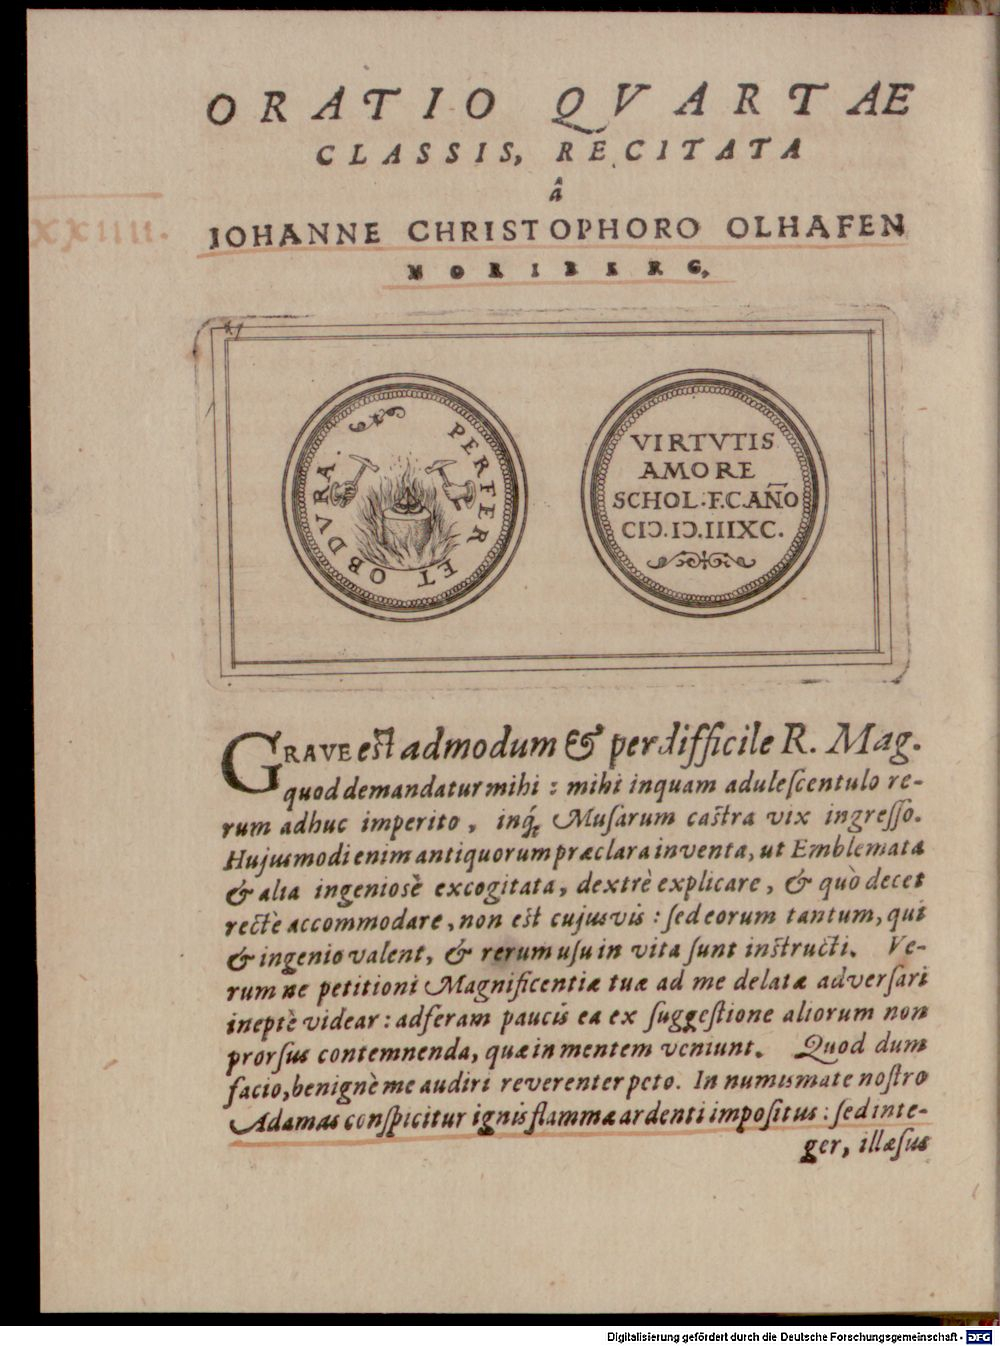 ORATIO QVARTAE
CLASSIS, RECITATA
â
XXIIII.
IOHANNE CHRISTOPHORO OLHAFEN
NORIBERG,
PERFER ET OBDVRA.
VIRTVTIS
AMORE
SCHOL.F.C.AÑO
CIↃ.IↃ.IIIXC.
GRAVE est admodum & perdifficile R. Mag.
quod demandatur mihi : mihi inquam adulescentulo re-
rum adhuc imperito, inq́; Musarum castra vix ingresso.
Hujusmodi enim antiquorum præclara inventa, ut Emblemata
& alia ingeniosè excogitata, dextrè explicare, & quò decet
rectè accommodare, non est cujusvis : sed eorum tantum, qui
& ingenio valent, & rerum usu in vita sunt instructi. Ve-
rum ne petitioni Magnificentiæ tuæ ad me delatæ adversari
ineptè videar : adferam paucis ea ex suggestione aliorum non
prorsus contemnenda, quæ in mentem veniunt. Quod dum
facio, benignè me audiri reverenter peto. In numismate nostro
Adamas conspicitur ignis flammæ ardenti impositus : sed inte-
ger, illæsus
Digitalisierung gefördert durch die Deutsche Forschungsgemeinschaft - DFG